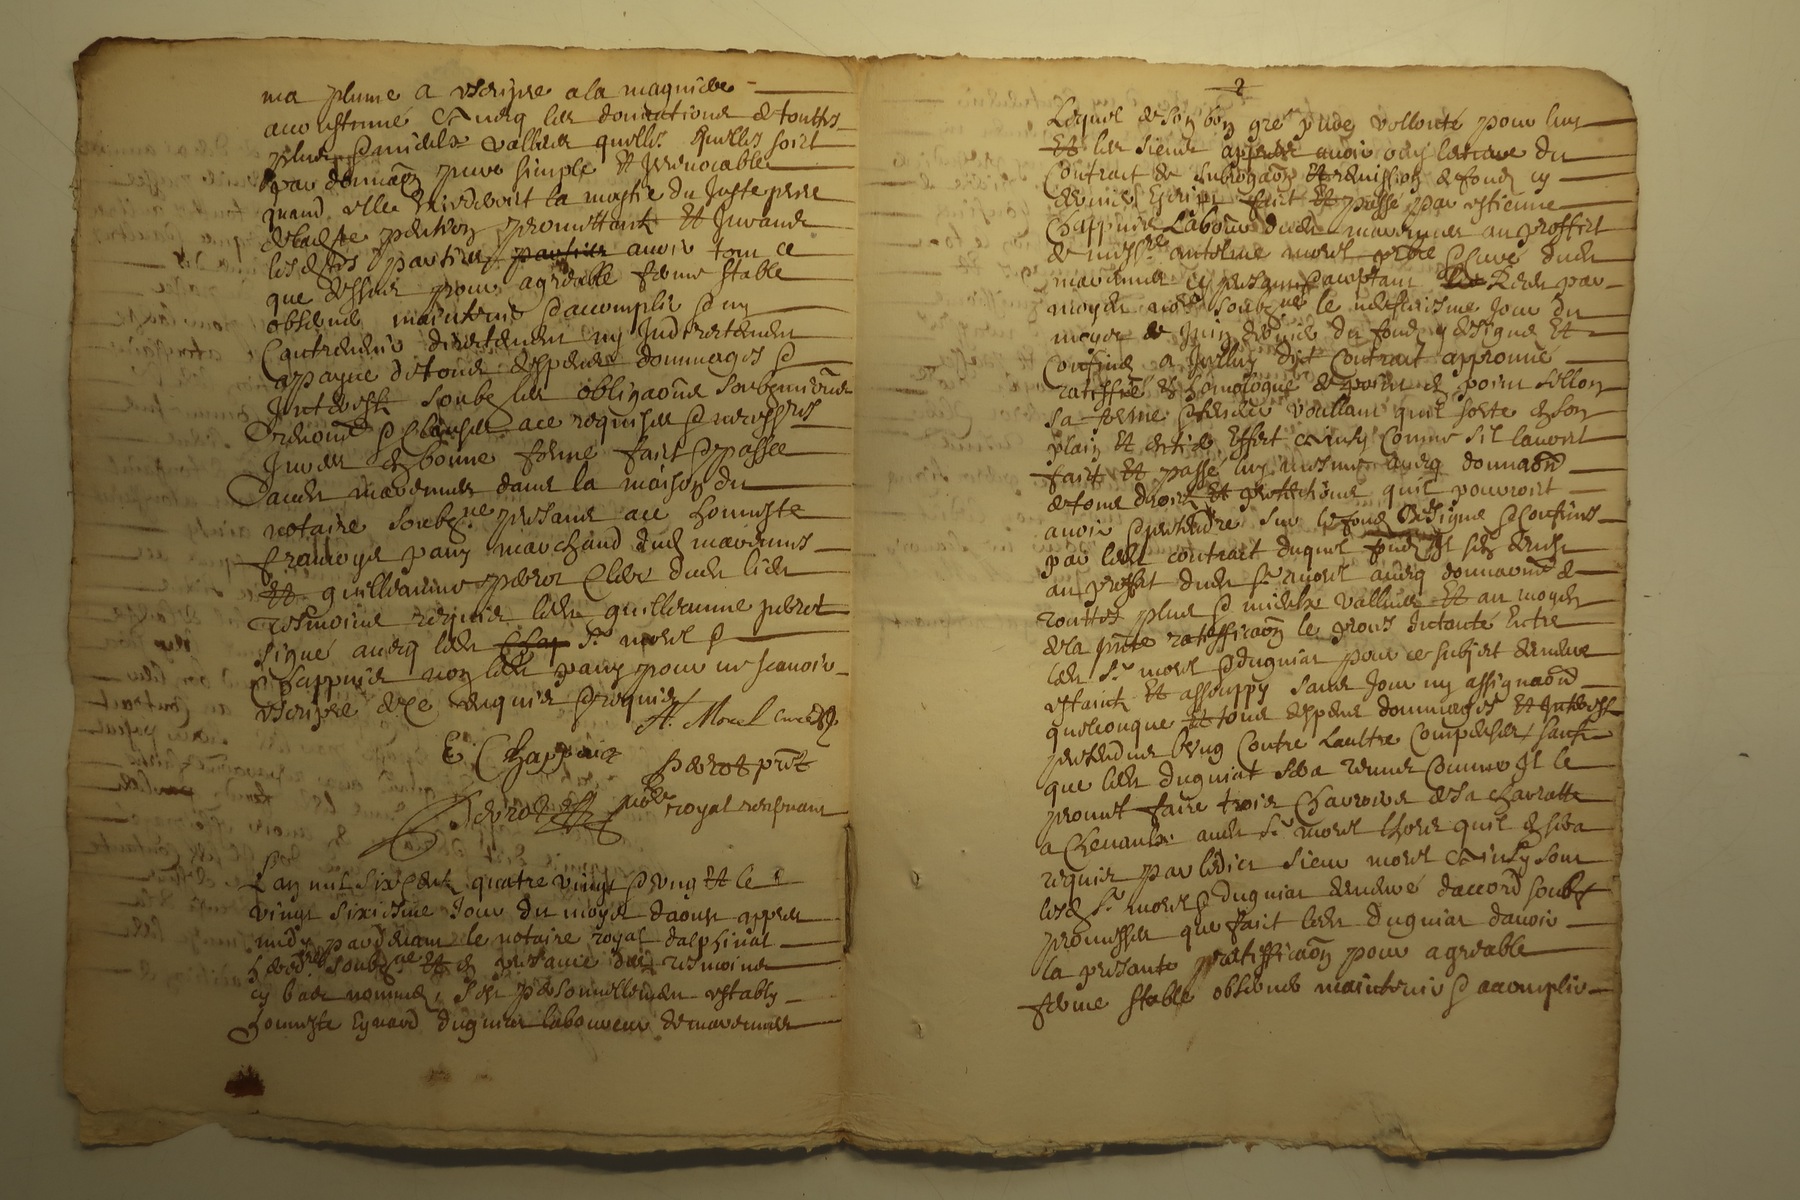 ma plume a escripre a la maniere
acoustumé avecq les donnations de touttes
plus & mieulx vallues quelles quelles soict
par donnaõn pure simple et Irrevocable
quand elle excederoit la moytié du Juste prix
promettant et Jurant
lesdtes parties avoir tout ce
que dessus pour agreable ferme stable
observer maintenir & accomplir & ny
Contrevenir directement ny Indirectement
a payne de tous despens dommages &
Interestz soubz les obligaõns soubzmissions
renonõns & clauses a ce requises & necessres
Jurees en bonne forme faict & passé
audit marennes dans la maison du
notaire soubzne presans ace honneste
françoys pary marchand dud marennes
et guilleaume perrot clerc dudit lieu
tesmoins requis ledit guilleaume perrot
signé avecq ledit sr morel &
Chappuis non ledit pary pour ne scavoir
escripre de ce enquis & requis
A. Morel curé
E Chappuis perrot pnt
Perrot nore royal recepvant
L'an mil six centz quatre vingt & ung et le
vingt sixiesme Jour du moys daoust appres
midy pardevant le notaire royal dalphinal
heredre soubzne et en presance des tesmoins
cy bas nommés, sest personnellement estably
honneste Eynard duguiat laboureur de marennes
2
Lequel de son bon gré pure vollonté pour luy
et les siens appres avoir ouy lecture du
Contract de subrogaõn et remission de fond cy
devant Escript faict et passé par estienne
Chappuis Laboureur dudit marennes au proffict
de messre antoine morel prbre Curé dudit
marennes cy presant & acceptant Receu par
moydit nore soubzne le neufviesme Jour du
moys de Juin dernier du fond y designé et
Confiné a Icelluy dict Contract approuve
ratiffie et homologue de point en point sellon
sa forme & teneur voullant quil sorte en son
plain et entier effect & ainsy comme sil lavoit
faict et passé luy mesme avecq donnaõn
de tous droictz et prettentions quil pouvoit
avoir & prettendre sur le fond designé & confiné
par ledit contract duquel
au proffit dudit sr morel avecq donnaõns de
touttes plus & mieulx vallues et au moyen
de la pnte ratiffication le proces dictante Entre
ledit sr morel & duguiat pour ce subject demeure
estainct et assouppy sans Jour ny assignaõn
quelconque et tous despens dommages et Interestz
prettendus lung Contre Laultre Compenses sauf
que ledit duguiat sera tenus comme Il le
promet faire trois Charroirs de sa charratte
a Chevaulx audit sr morel lhors quil en sera
requis par ledict sieur morel & ainsy sont
lesd srs morel & duguiat demeuré daccord soubz
promesse que faict ledit duguiat davoir
la presante ratifficaõn pour agreable
ferme stable observer maintenir & acomplir